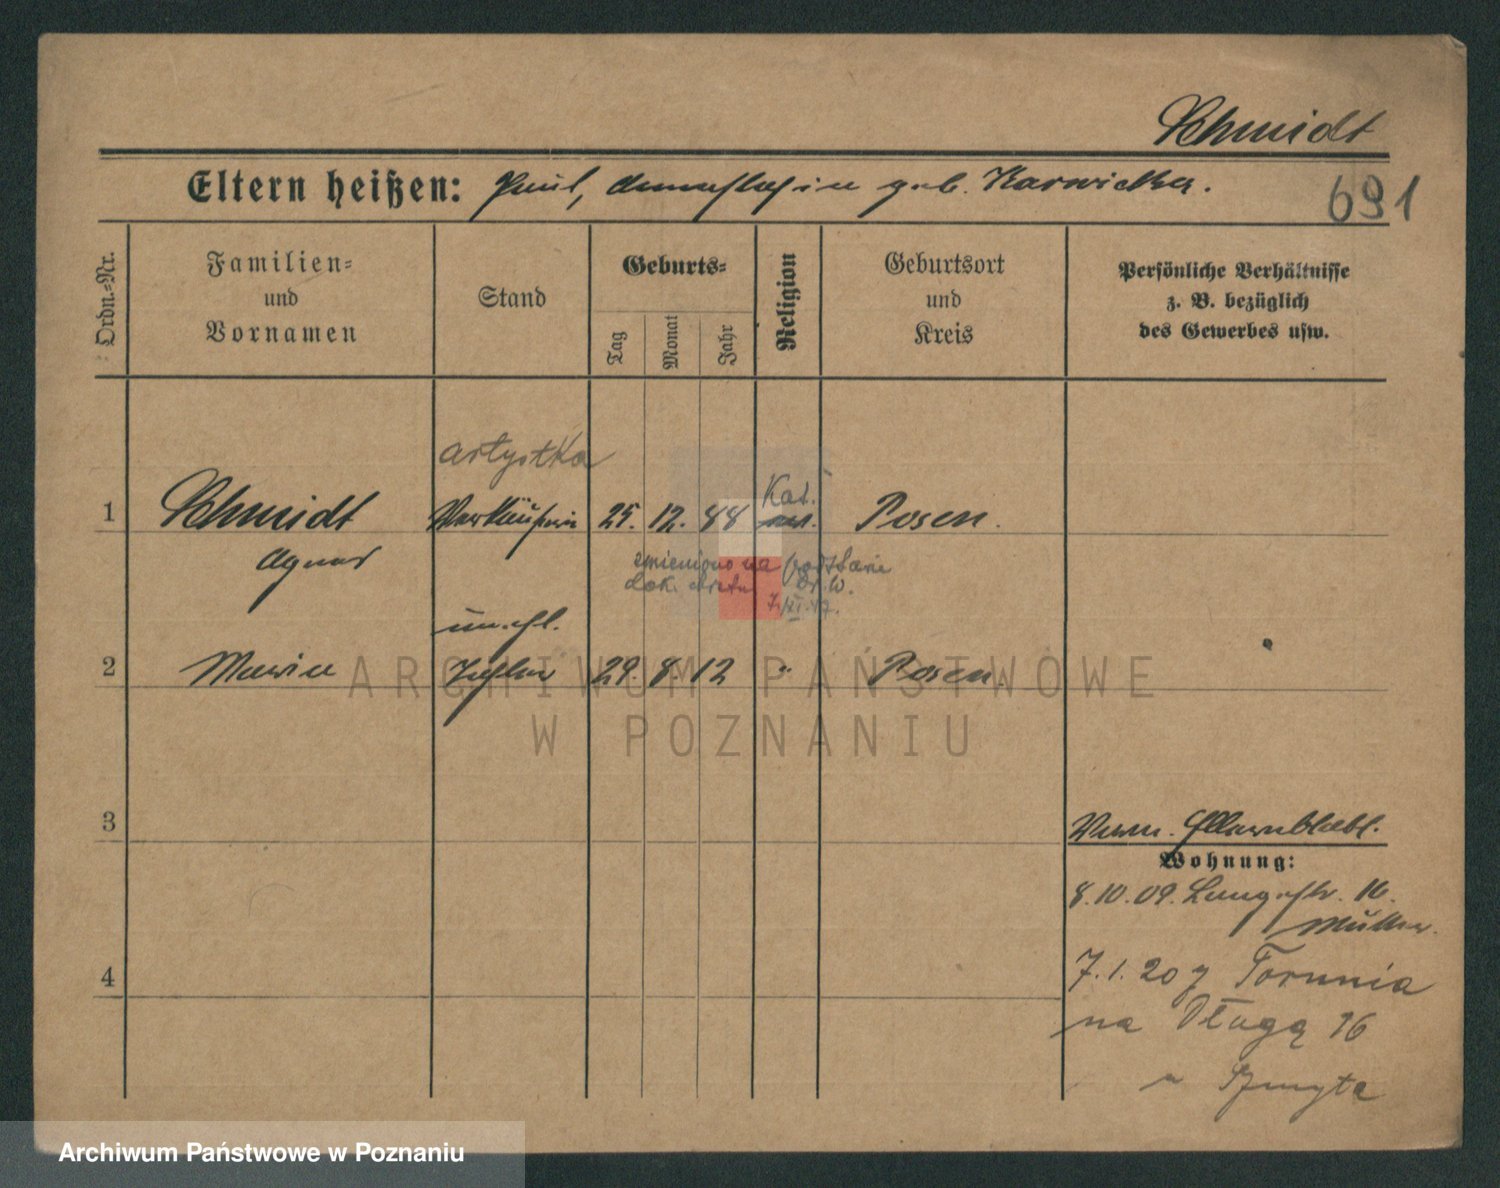 Schmidt
Eltern heißen: Paul, geb. Karwicka.
691
Ordn.-Nr.
Familien-
und
Vornamen
Stand
Geburts-
Tag
Monat
Jahr
Religion
Geburtsort
und
Kreis
Persönliche Verhältnisse
z. B. bezüglich
des Gewerbes usw.
artystka
1 Schmidt Verkäuferin 25. 12. 88 Kat. Posen.
Agnes
zmieniono na podstawie
dok.
un.ehl.
2 Maria Tochter 29. 8. 12 " Posen.
3
Wohnung:
8.10.09. Langestr. 16.
Müller.
4
7.1.20 z Torunia
na Długą 16
u Szmyta
ARCHIWUM PAŃSTWOWE
W POZNANIU
Archiwum Państwowe w Poznaniu